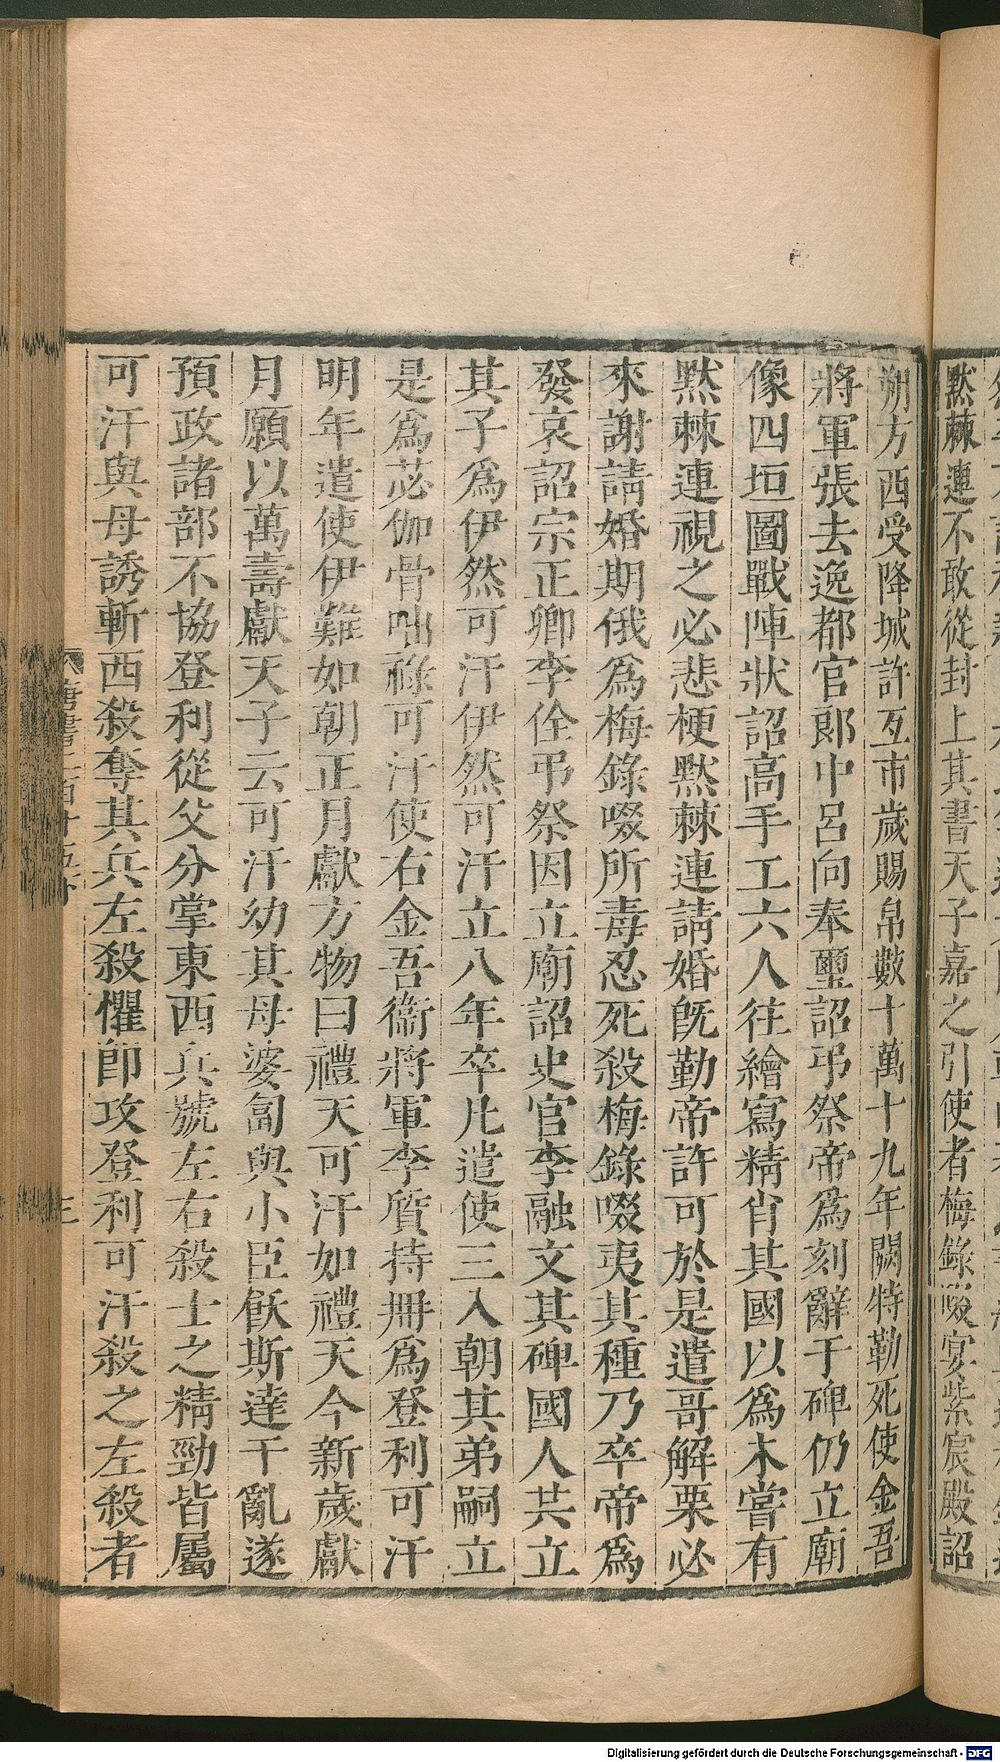 默棘連不敢從封上其書天子嘉之引使者梅錄啜宴紫宸殿詔
朔方西受降城許互市歲賜帛數十萬十九年闕特勒死使金吾
將軍張去逸都官郎中呂向奉璽詔弔祭帝爲刻辭于碑仍立廟
像四垣圖戰陣狀詔高手工六人往繪寫精肖其國以爲未嘗有
默棘連視之必悲梗默棘連請婚旣勤帝許可於是遣哥解栗必
來謝請婚期俄爲梅錄啜所毒忍死殺梅錄啜夷其種乃卒帝爲
發哀詔宗正卿李佺弔祭因立廟詔史官李融文其碑國人共立
其子爲伊然可汗伊然可汗立八年卒凡遣使三入朝其弟嗣立
是爲苾伽骨咄祿可汗使右金吾衞將軍李質持冊爲登利可汗
明年遣使伊難如朝正月獻方物曰禮天可汗如禮天今新歲獻
月願以萬壽獻天子云可汗幼其母婆匐與小臣飫斯達干亂遂
預政諸部不協登利從父分掌東西兵號左右殺士之精勁皆屬
可汗與母誘斬西殺奪其兵左殺懼卽攻登利可汗殺之左殺者
唐書二百十五下
三
Digitalisierung gefördert durch die Deutsche Forschungsgemeinschaft - DFG